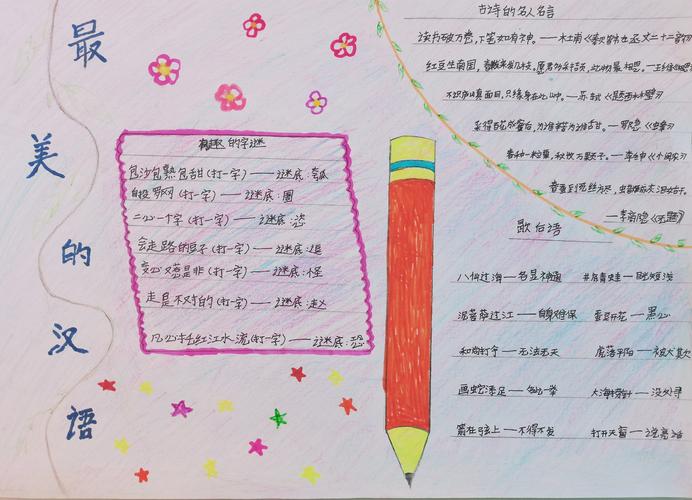 最
美
的
汉
语
有趣的字谜
包沙包熟包甜(打一字)——谜底:
自投罗网(打一字)——谜底:
二心一十字(打一字)——谜底:
会走路的豆子(打一字)——谜底:逗
(打一字)——谜底:怪
走是不对的(打一字)——谜底:赵
江水流(打一字)——谜底:恐
古诗的名人名言
读书破万卷,下笔如有神。——杜甫《
红豆生南国,春来发几枝。愿君多采撷,此物最相思。——王维《相思
不识庐山真面目,只缘身在此山中。——苏轼《题西林壁》
采得百花成蜜后,为谁辛苦为谁甜。——罗隐《蜂》
春种一粒粟,秋收万颗子。——李绅《悯农》
春蚕到死丝方尽,
——李商隐《无题》
歇后语
八仙过海——各显神通 井底青蛙——目光短浅
泥菩萨过江——自身难保 蚕豆开花——黑心
和尚打伞——无法无天 虎落平阳——被犬欺
画蛇添足——多此一举 大海捞针——没处寻
箭在弦上——不得不发 打开天窗——说亮话